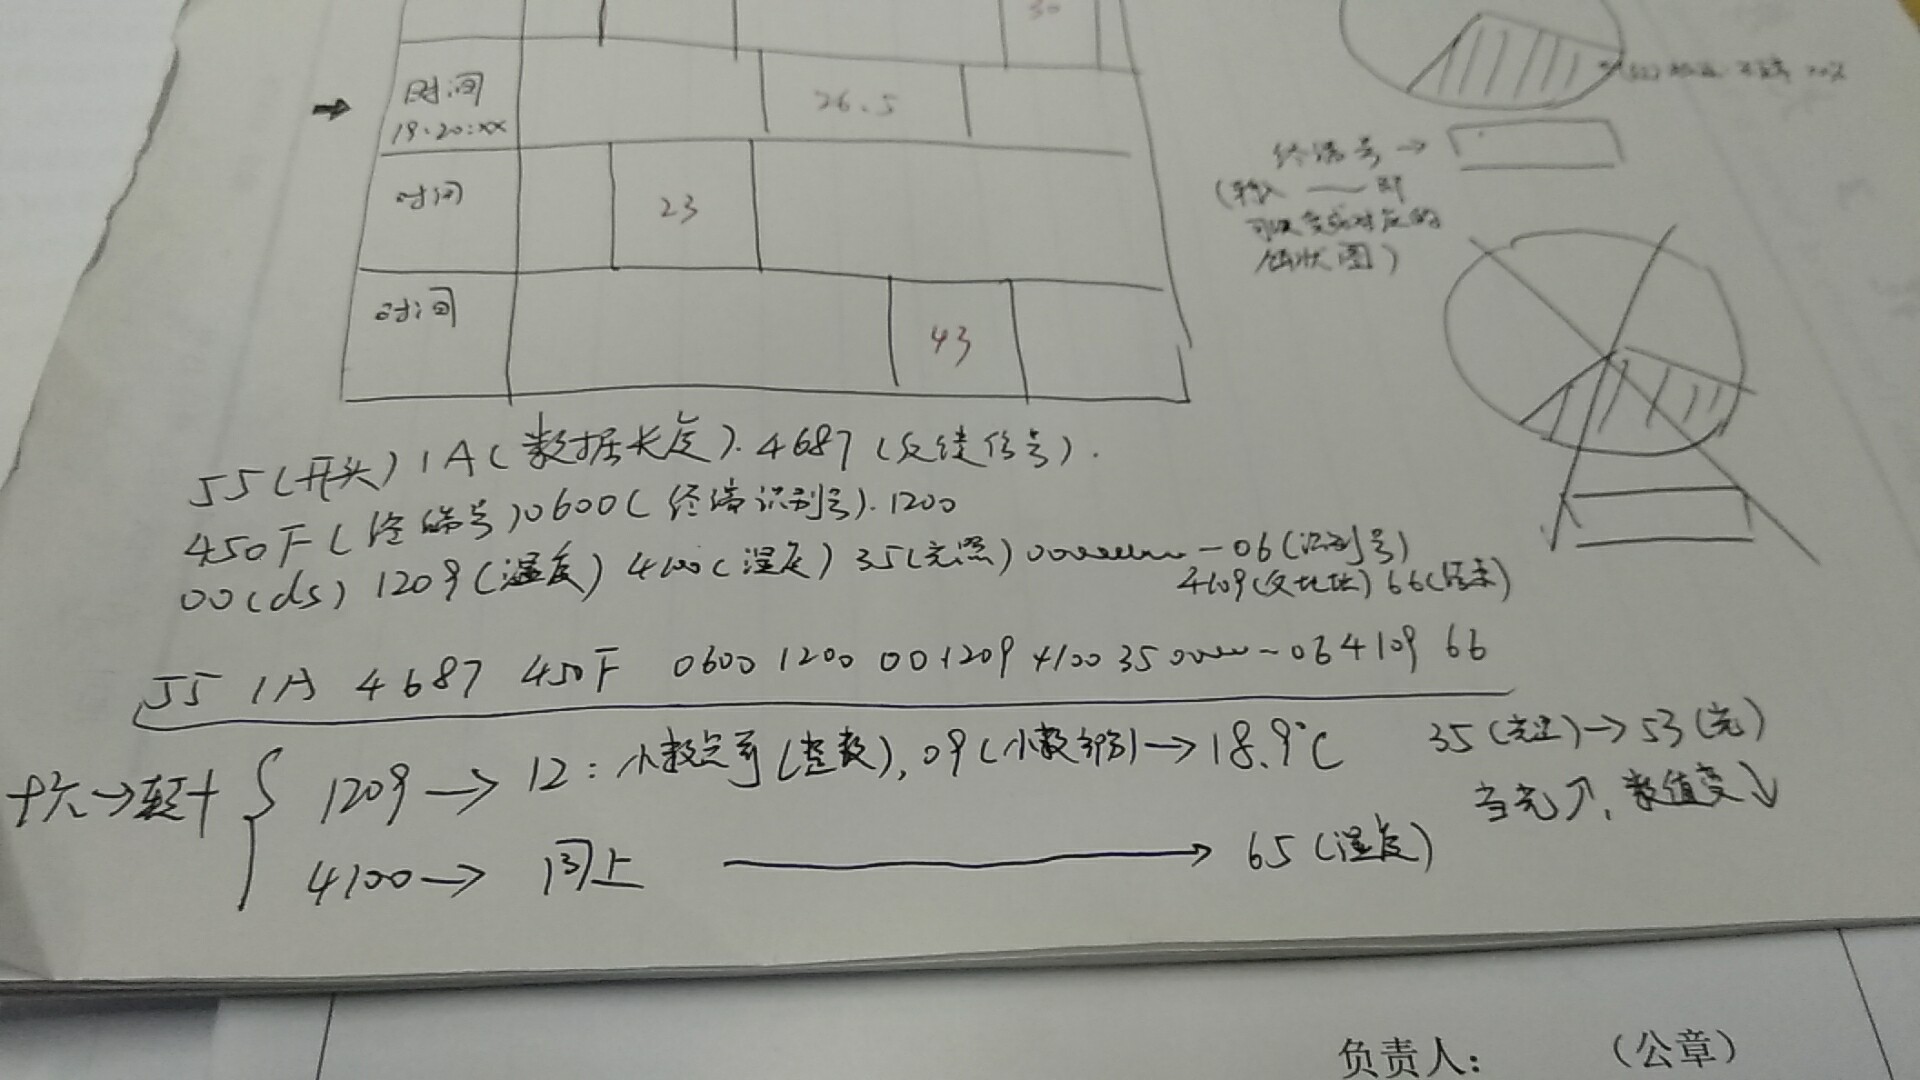 30
时间
19:20:xx
26.5
时间
23
时间
43
终端号 →
(输入 —— 即
可以变成对应的
饼状图)
55(开头)1A(数据长度).4687(反馈信号).
450F(终端号)0600(终端识别号).1200
00(ds) 1209(温度) 4100(湿度) 35(光照) 00 - 06(识别号)
4109(父地址) 66(结束)
55 1A 4687 450F 0600 1200 00 1209 4100 35 00 ~ 06 4109 66
十六→转十
1209 → 12: 小数点前(整数), 09(小数部分) → 18.9℃
35(光照) → 53(光)
当光↑, 数值变↓
4100 → 同上 → 65(湿度)
负责人: (公章)